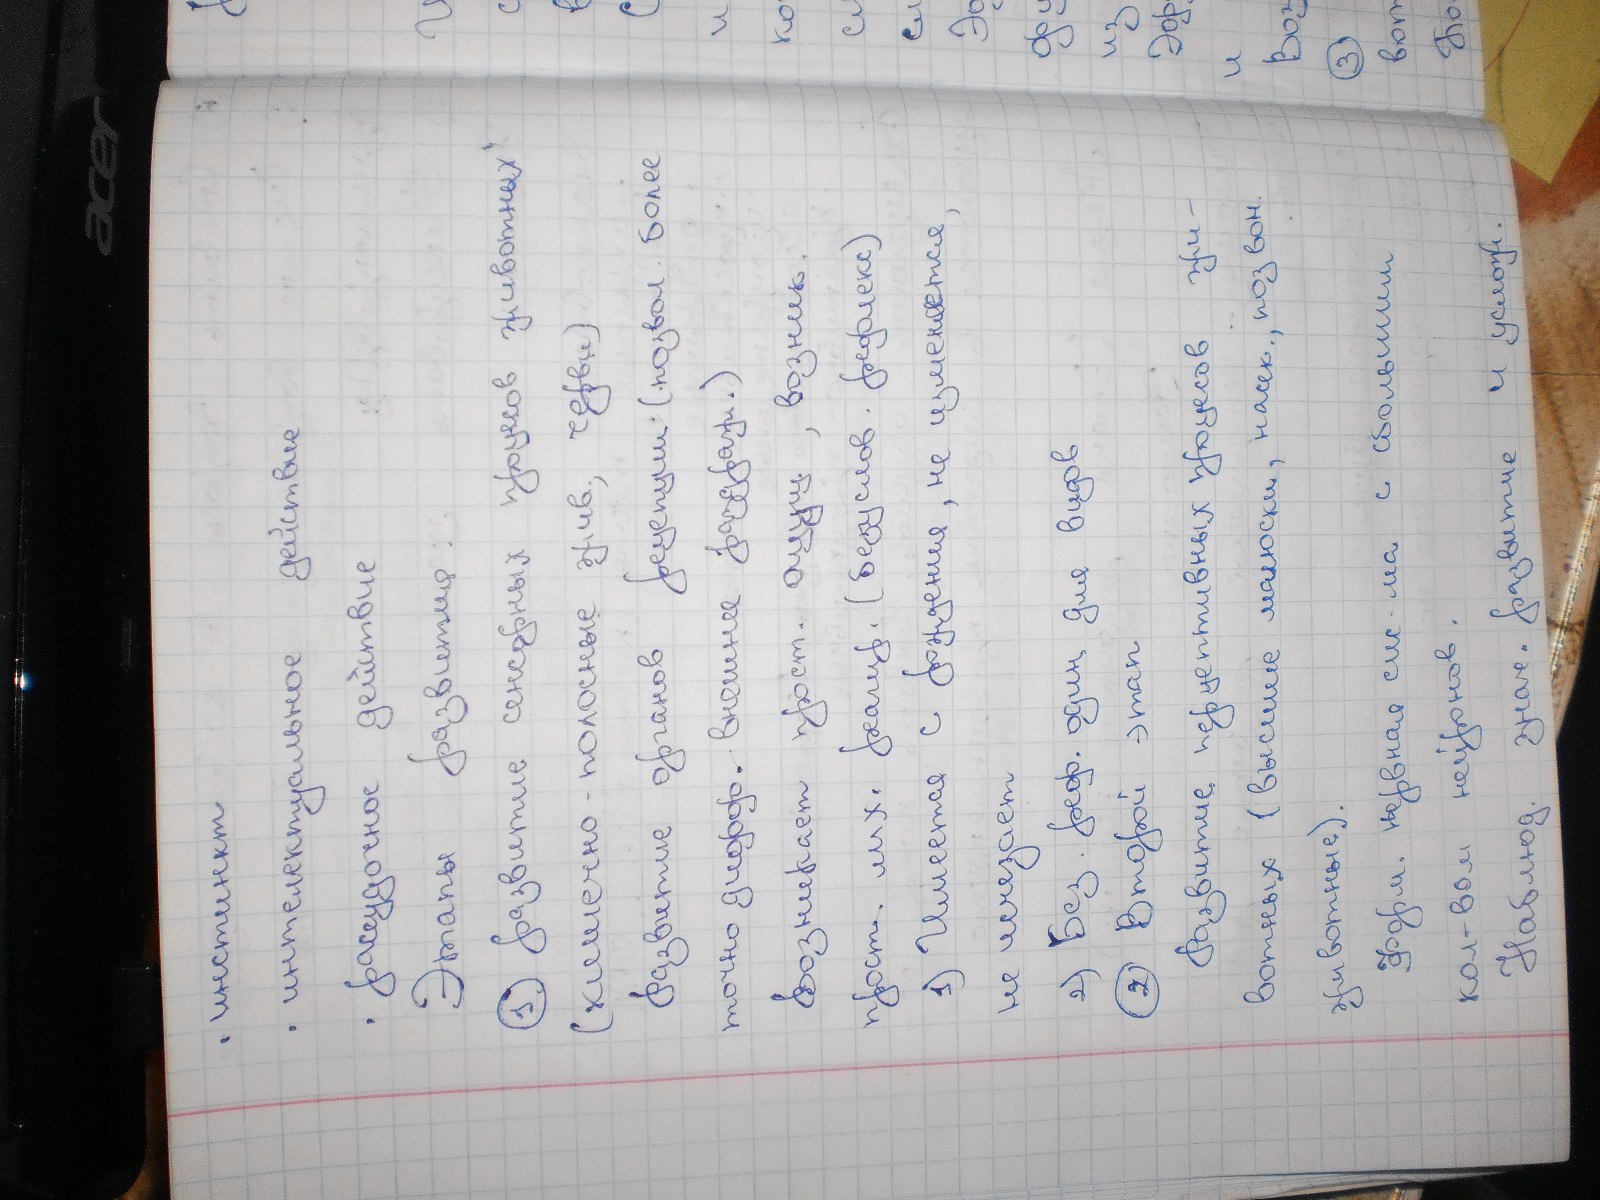 • инстинкт
• интелектуальное действие
• расудочное действие
Этапы развития:
① развитие сенсорных процесов животных
(кишечно-полосные жив., черви)
Развитие органов рецепции (позвол. более
точно дифф. внешнее раздраж.)
Возникает прост. ощущ, возник.
прост. их. реакц. (безуслов. рефлекс)
1) Имеется с рождения, не изменяется,
не исчезает
2) Без. реф. один для видов
② Второй этап
Развитие перцептивных процесов жи-
вотных (высшие малюски, насек., позвон.
животные).
Форм. нервная сис-ма с большим
кол-вом нейронов.
Наблюд. знач. развитие и услож.
③
acer